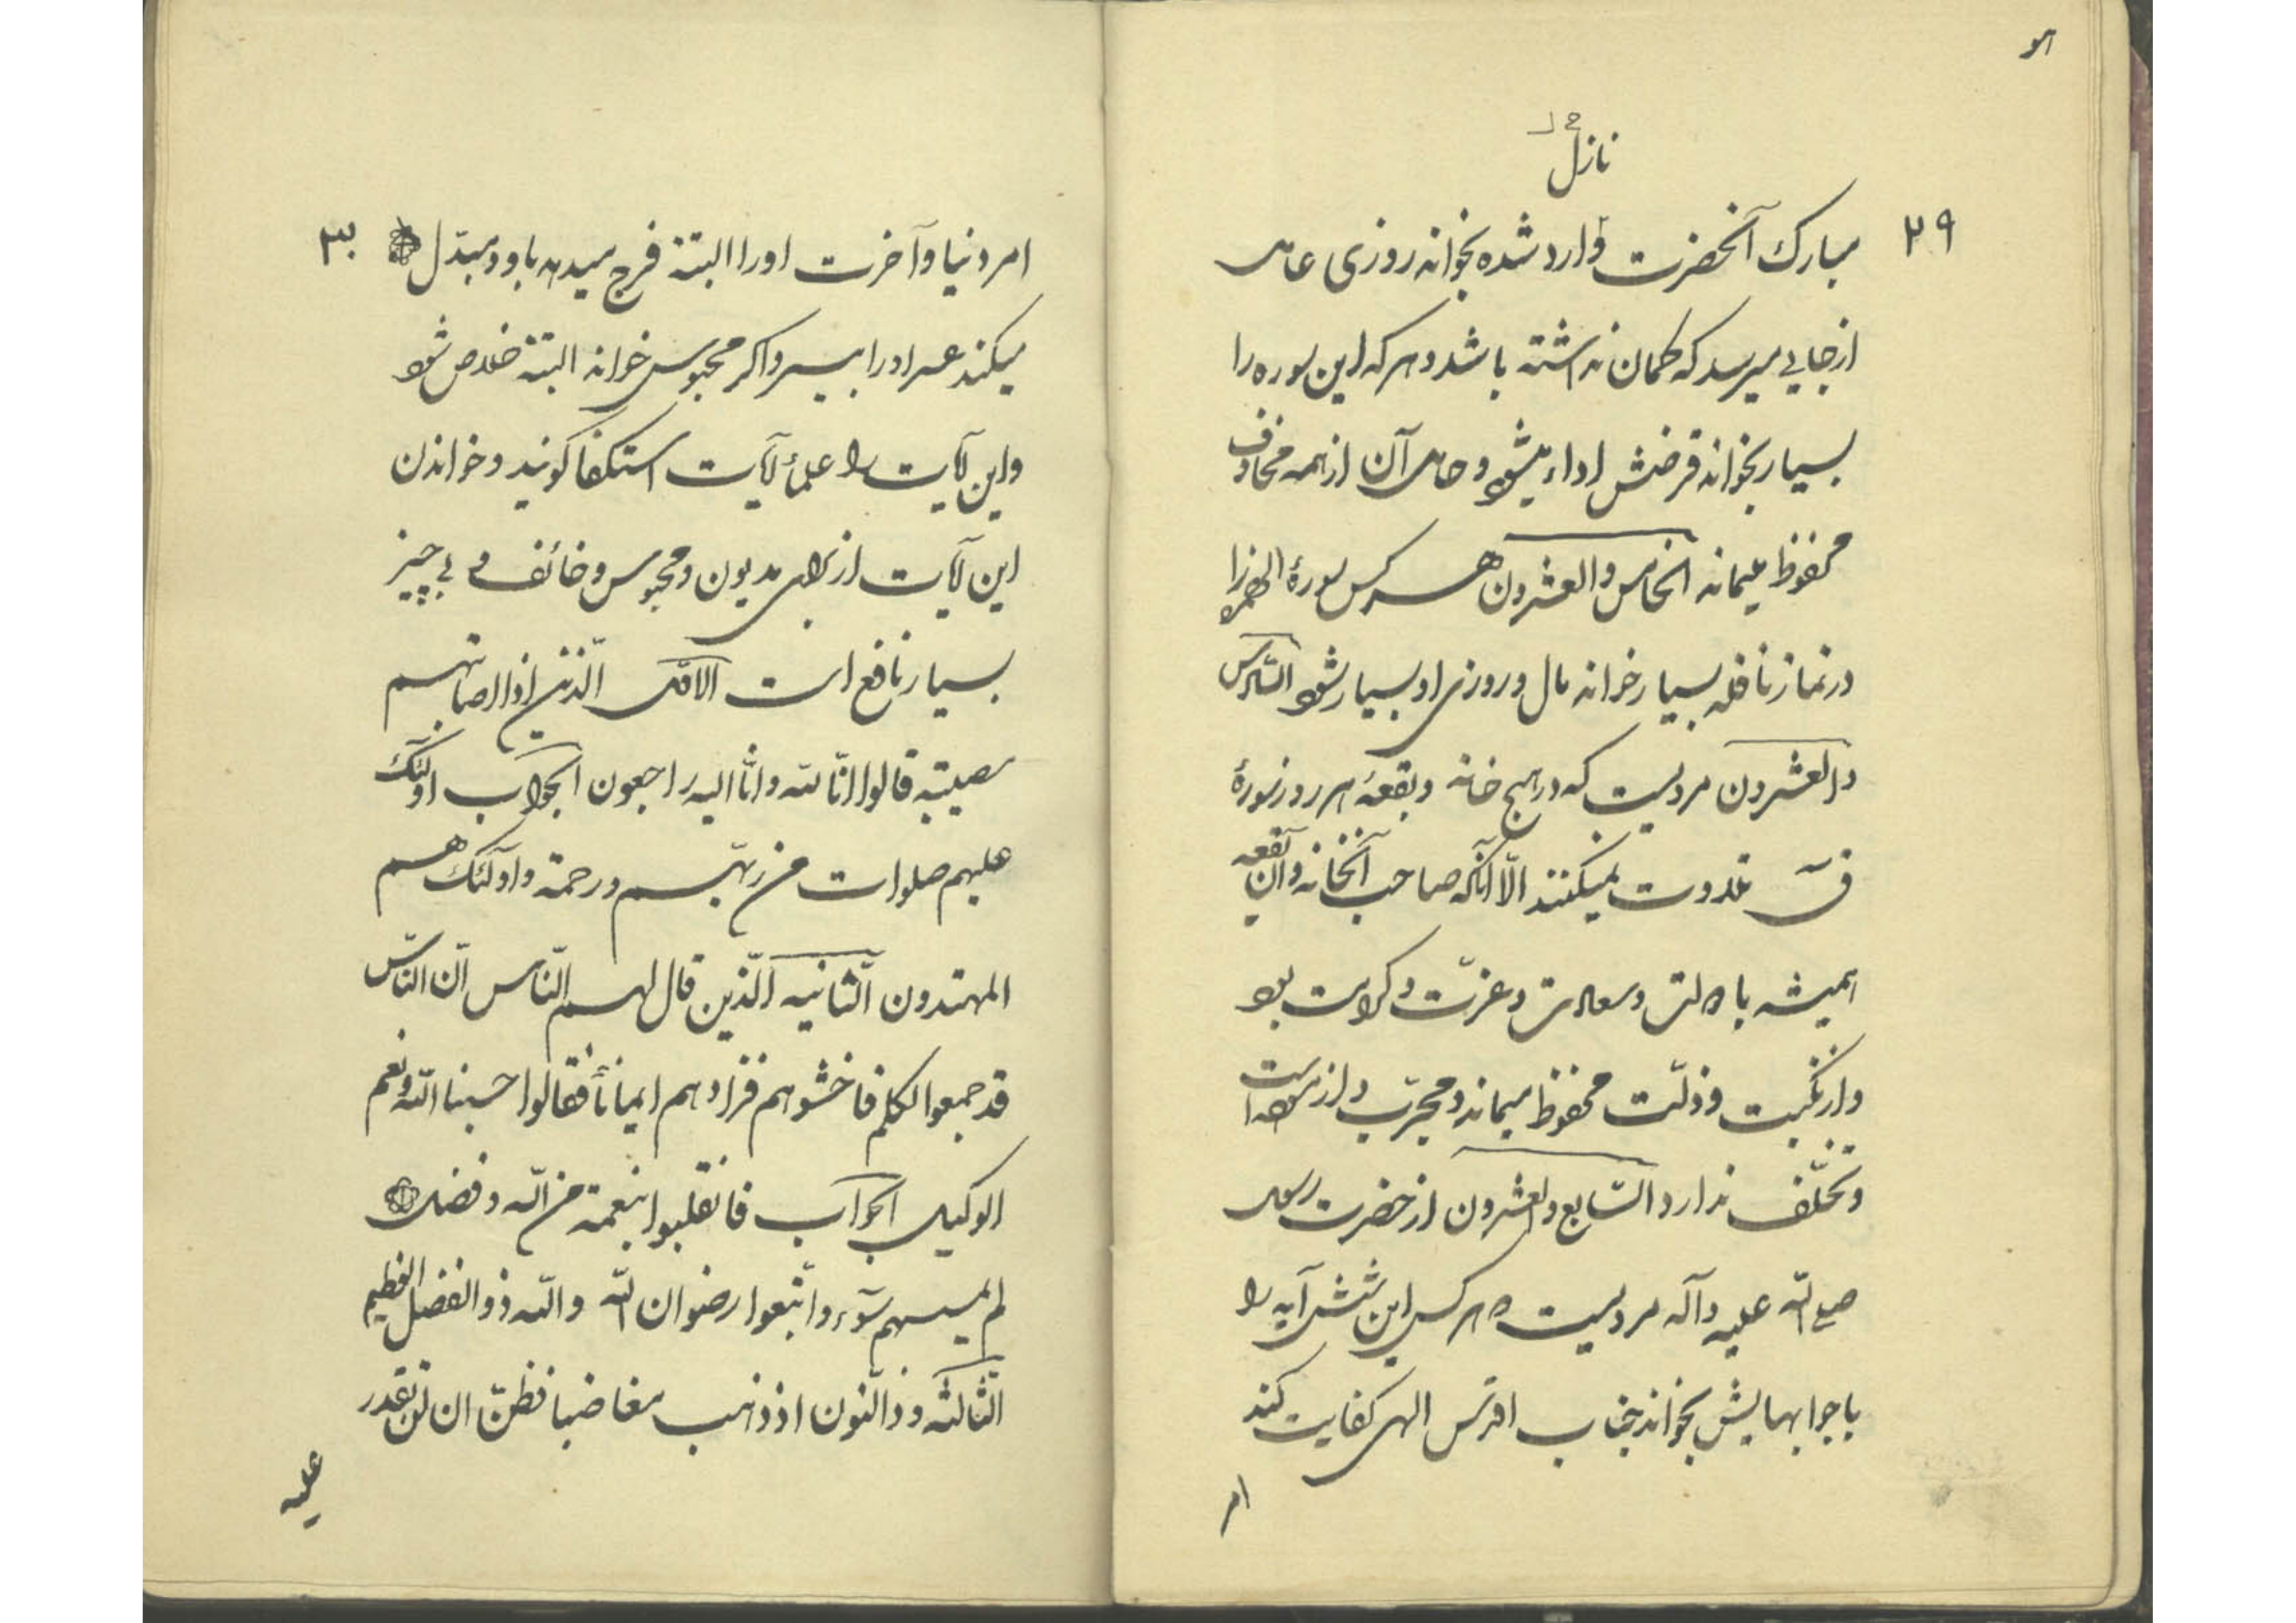 هو
نازل
۲۹
مبارک آنحضرت وارد شده بخواند روزی حامل
از جایی میرسد که گمان نداشته باشد و هر که این سوره را
بسیار بخواند قرضش اداء میشود و حامل آن از همه مخاوف
محفوظ میماند الخامس والعشرون هر کس سورهٔ الهمزه را
در نماز نافله بسیار خواند مال و روزی او بسیار شود السّادس
والعشرون مرویست که در هیچ خانه و بقعه هر روز سورهٔ
قٓ تلاوت نمیکنند الّا آنکه صاحب آنخانه و آن بقعه
همیشه با دولت و سعادت و عزّت و کرامت بود
و از نکبت و ذلّت محفوظ میماند و مجرّب و آزموده است
و تخلّف ندارد السّابع والعشرون از حضرت رسول
صلی اللّه علیه وآله مرویست هر کس این شش آیه را
با جوابهایش بخواند جناب اقدس الهی کفایت کند
امر
۳۰
امر دنیا و آخرت او را البتة فرج میدهد باو و مبدّل
میکند عسر او را بیسر و اگر محبوس خواند البتة خلاص شود
و این آیات را علماء آیات استکفا گویند و خواندن
این آیات از برای مدیون و محبوس و خائف و بی چیز
بسیار نافع است الاولی الّذین اذا اصابتهم
مصیبة قالوا انّا للّه وانّا الیه راجعون الجواب اولٓئک
علیهم صلوات من ربّهم ورحمة واولٓئک هم
المهتدون الثّانیه الّذین قال لهم النّاس انّ النّاس
قد جمعوا لکم فاخشوهم فزادهم ایماناً فقالوا حسبنا اللّه ونعم
الوکیل الجواب فانقلبوا بنعمة من اللّه وفضل
لم یمسسهم سوٓء واتّبعوا رضوان اللّه واللّه ذوالفضل العظیم
الثّالثه وذاالنّون اذ ذهب مغاضبا فظنّ ان لن نقدر
علیه